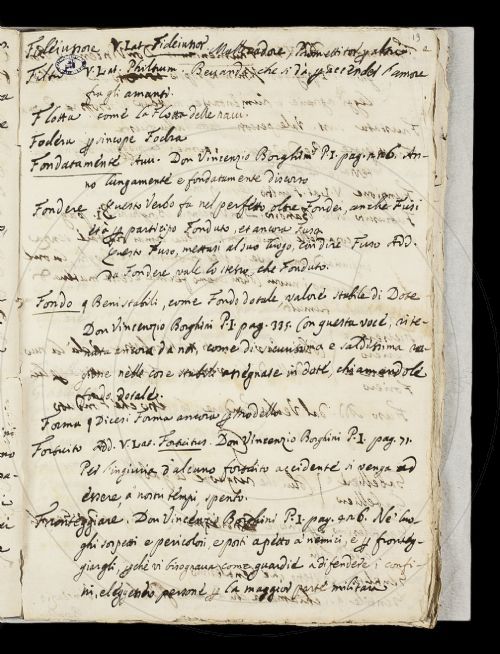 19
Fideiussore V. Lat. Fideiussor Mallevadore, Promettitor p altri
Filtro V. Lat. Philtrum. Bevanda, che si dà p accender l'amore
fra gli amanti.
Flotta come la Flotta delle navi.
Fodera p sincope Fodra
Fondatamente Avv. Don Vincenzio Borghini P.I. pag. 426. An-
no lungamente e fondatamente discorso
Fondere Questo Verbo fa nel perfetto oltre Fondei, anche Fusi
età p participio Fonduto, et ancora Fuso.
Questo Fuso, mettasi al suo luogo, con dire Fuso Add.
da Fondere, vale lo stesso, che Fonduto.
Fondo Beni stabili, come Fondi dotale, valore stabile di Dote
Don Vincenzio Borghini P.I. pag. 335. Con questa voce, rite-
nuta ancora da noi, come di sicurissima e saldissima ra-
gione nelle cose stabili assegnate in dote, chiamandole
fondo dotale.
Forma Dicesi Forma ancora p Modello
Fortuito Add. V. Lat. Fortuitus. Don Vincenzio Borghini P.I. pag. 71.
Per ingiuria d'alcuno fortuito accidente si venga ad
essere, a nostri tempi spento.
Fronteggiare. Don Vincenzio Borghini P.I. pag. 426. Ne' luo-
ghi sospetti e pericolosi e posti apetto a' nemici, e p frontegg-
giargli, p che vi bisognava come guardie a difendere i confi-
ni, eleggendo persone p la maggior parte militare